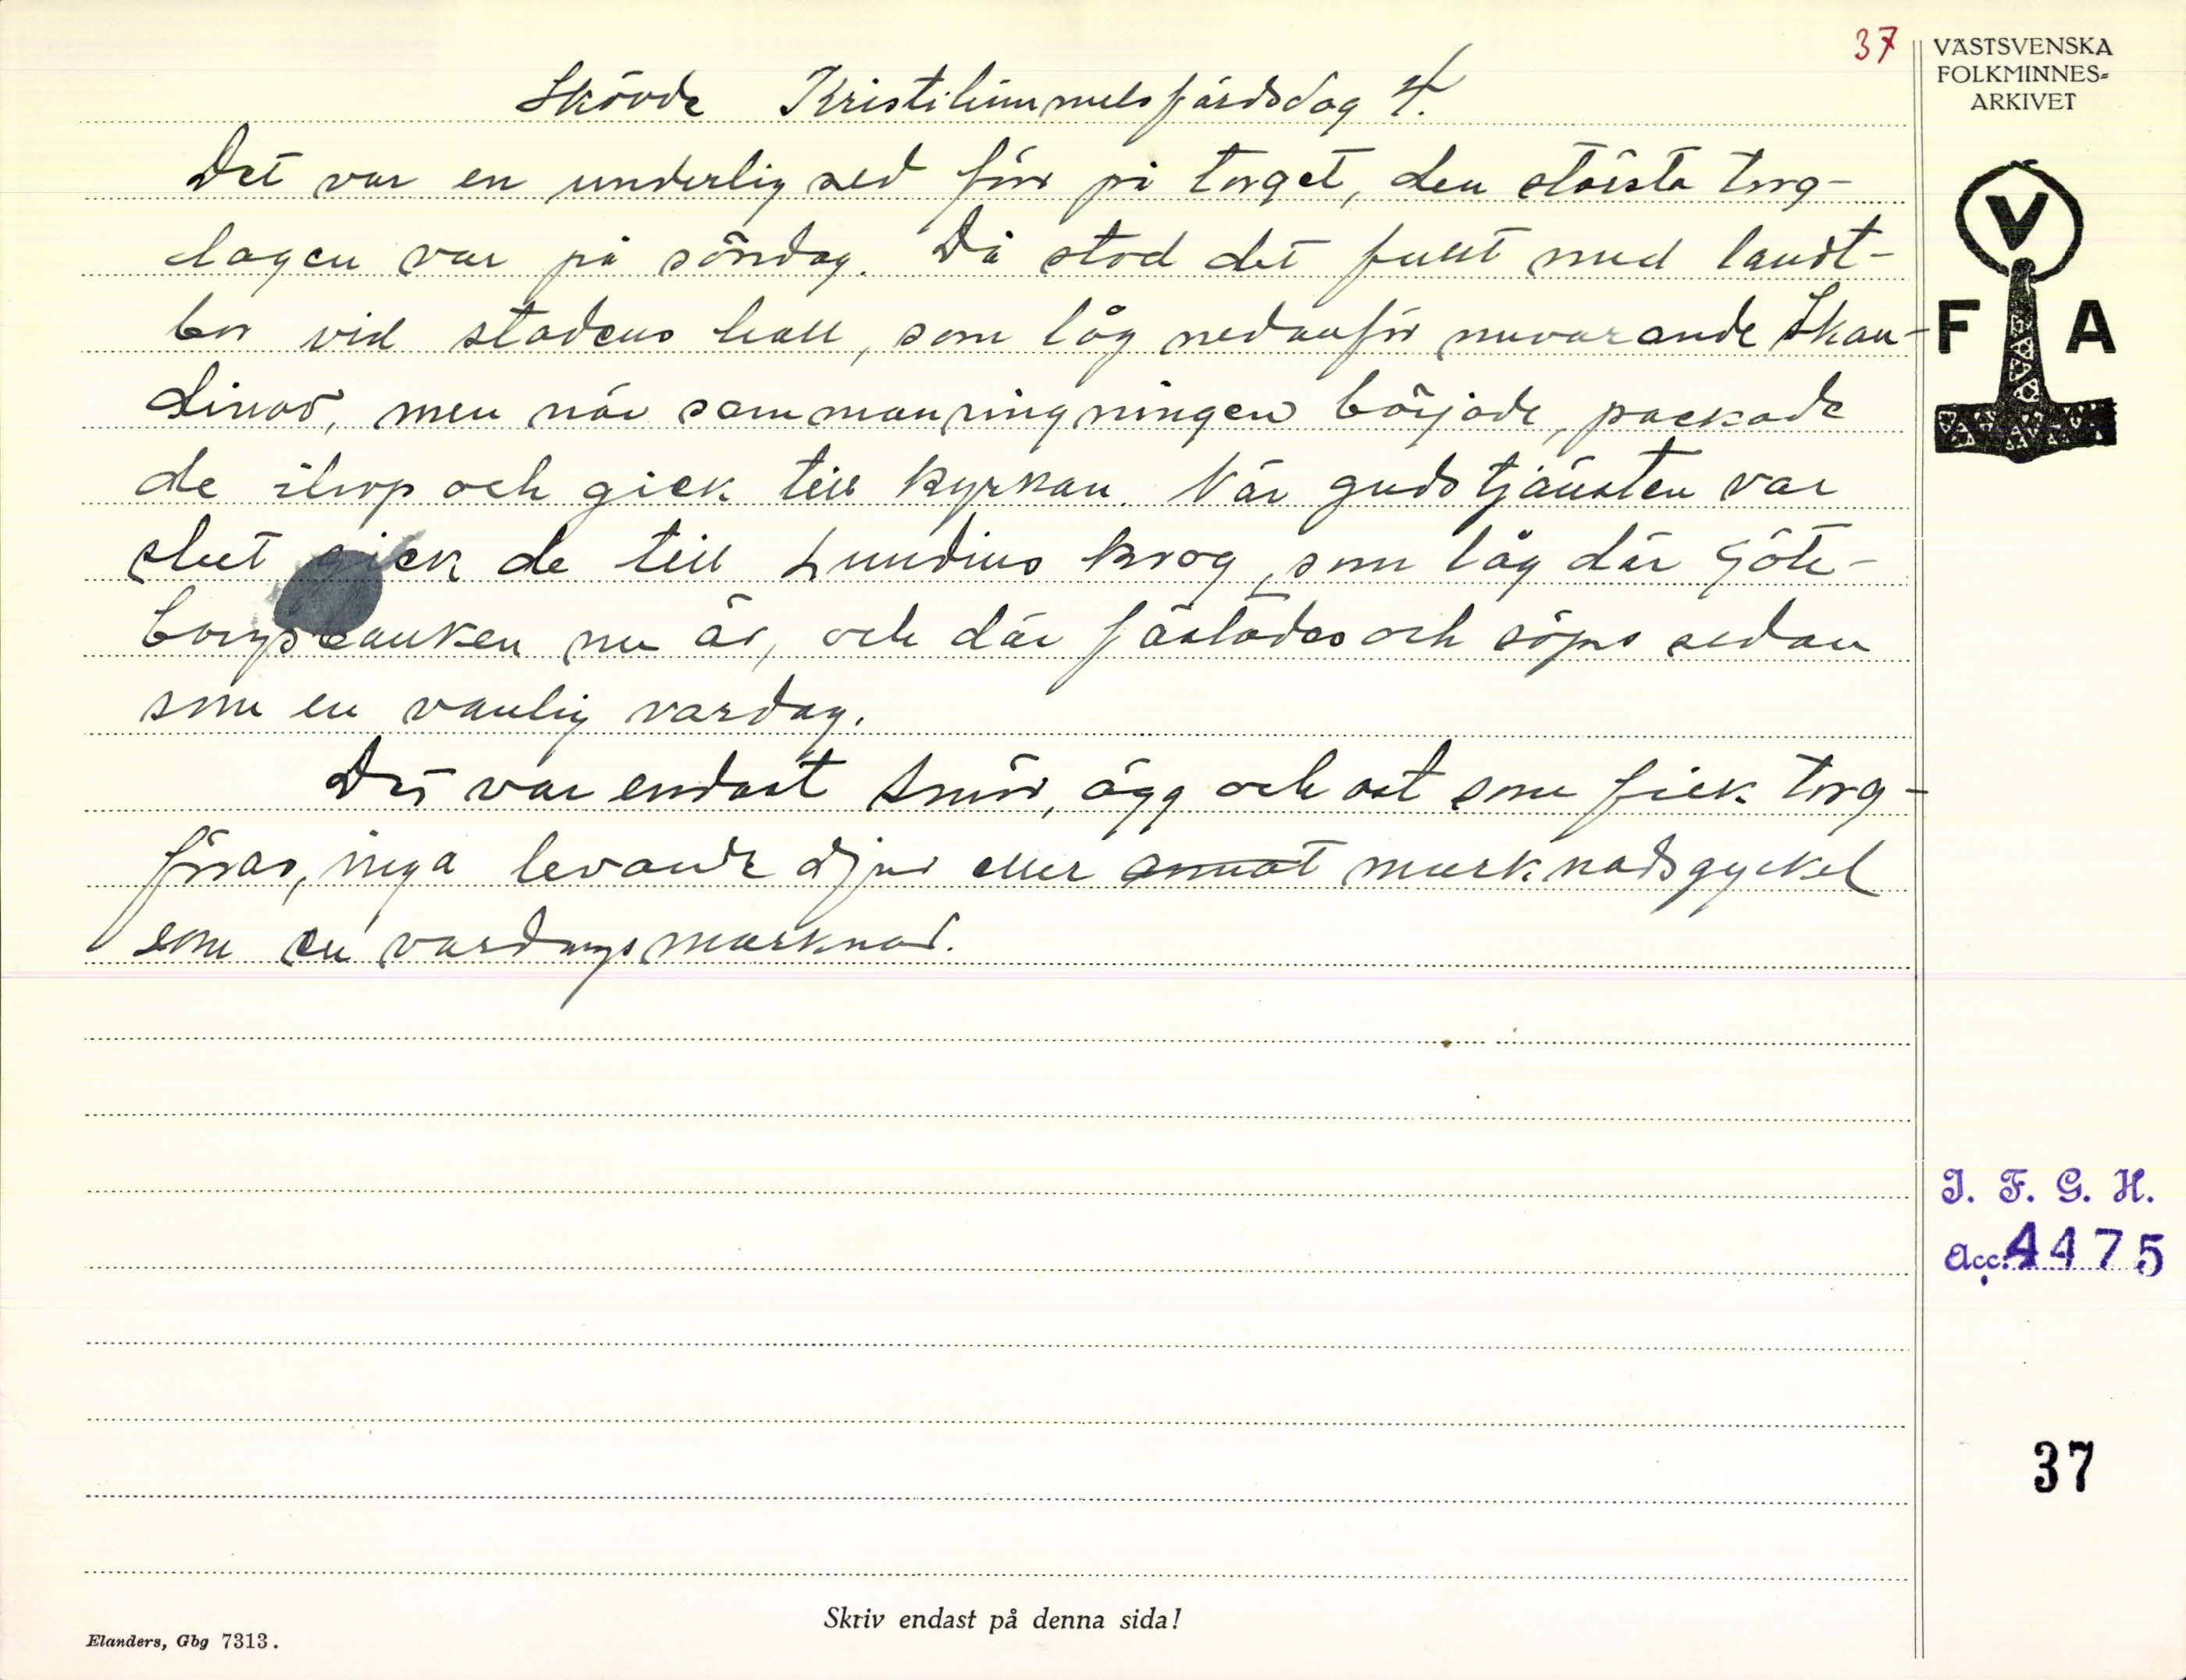 37
VÄSTSVENSKA
FOLKMINNES=
ARKIVET
Skövde Kristihimmelsfärdsdag 4.
Det var en underlig sed förr på torget, den största torg-
dagen var på söndag. Då stod det fullt med landt-
bor vid stadens hall, som låg nedanför nuvarande Skan-
dinav, men när sammanringningen började, packade
de ihop och gick till kyrkan. När gudstjänsten var
slut gick de till Lundins krog, som låg där Göte-
borgsbanken nu är, och där fästades och söps sedan
som en vanlig vardag.
Det var endast smör, ägg och ost som fick torg-
föras, inga levande djur eller annat marknadsgyckel
som en vardagsmarknad.
V
F A
I. F. G. H.
Acc: 4475
37
Skriv endast på denna sida!
Elanders, Gbg 7313.